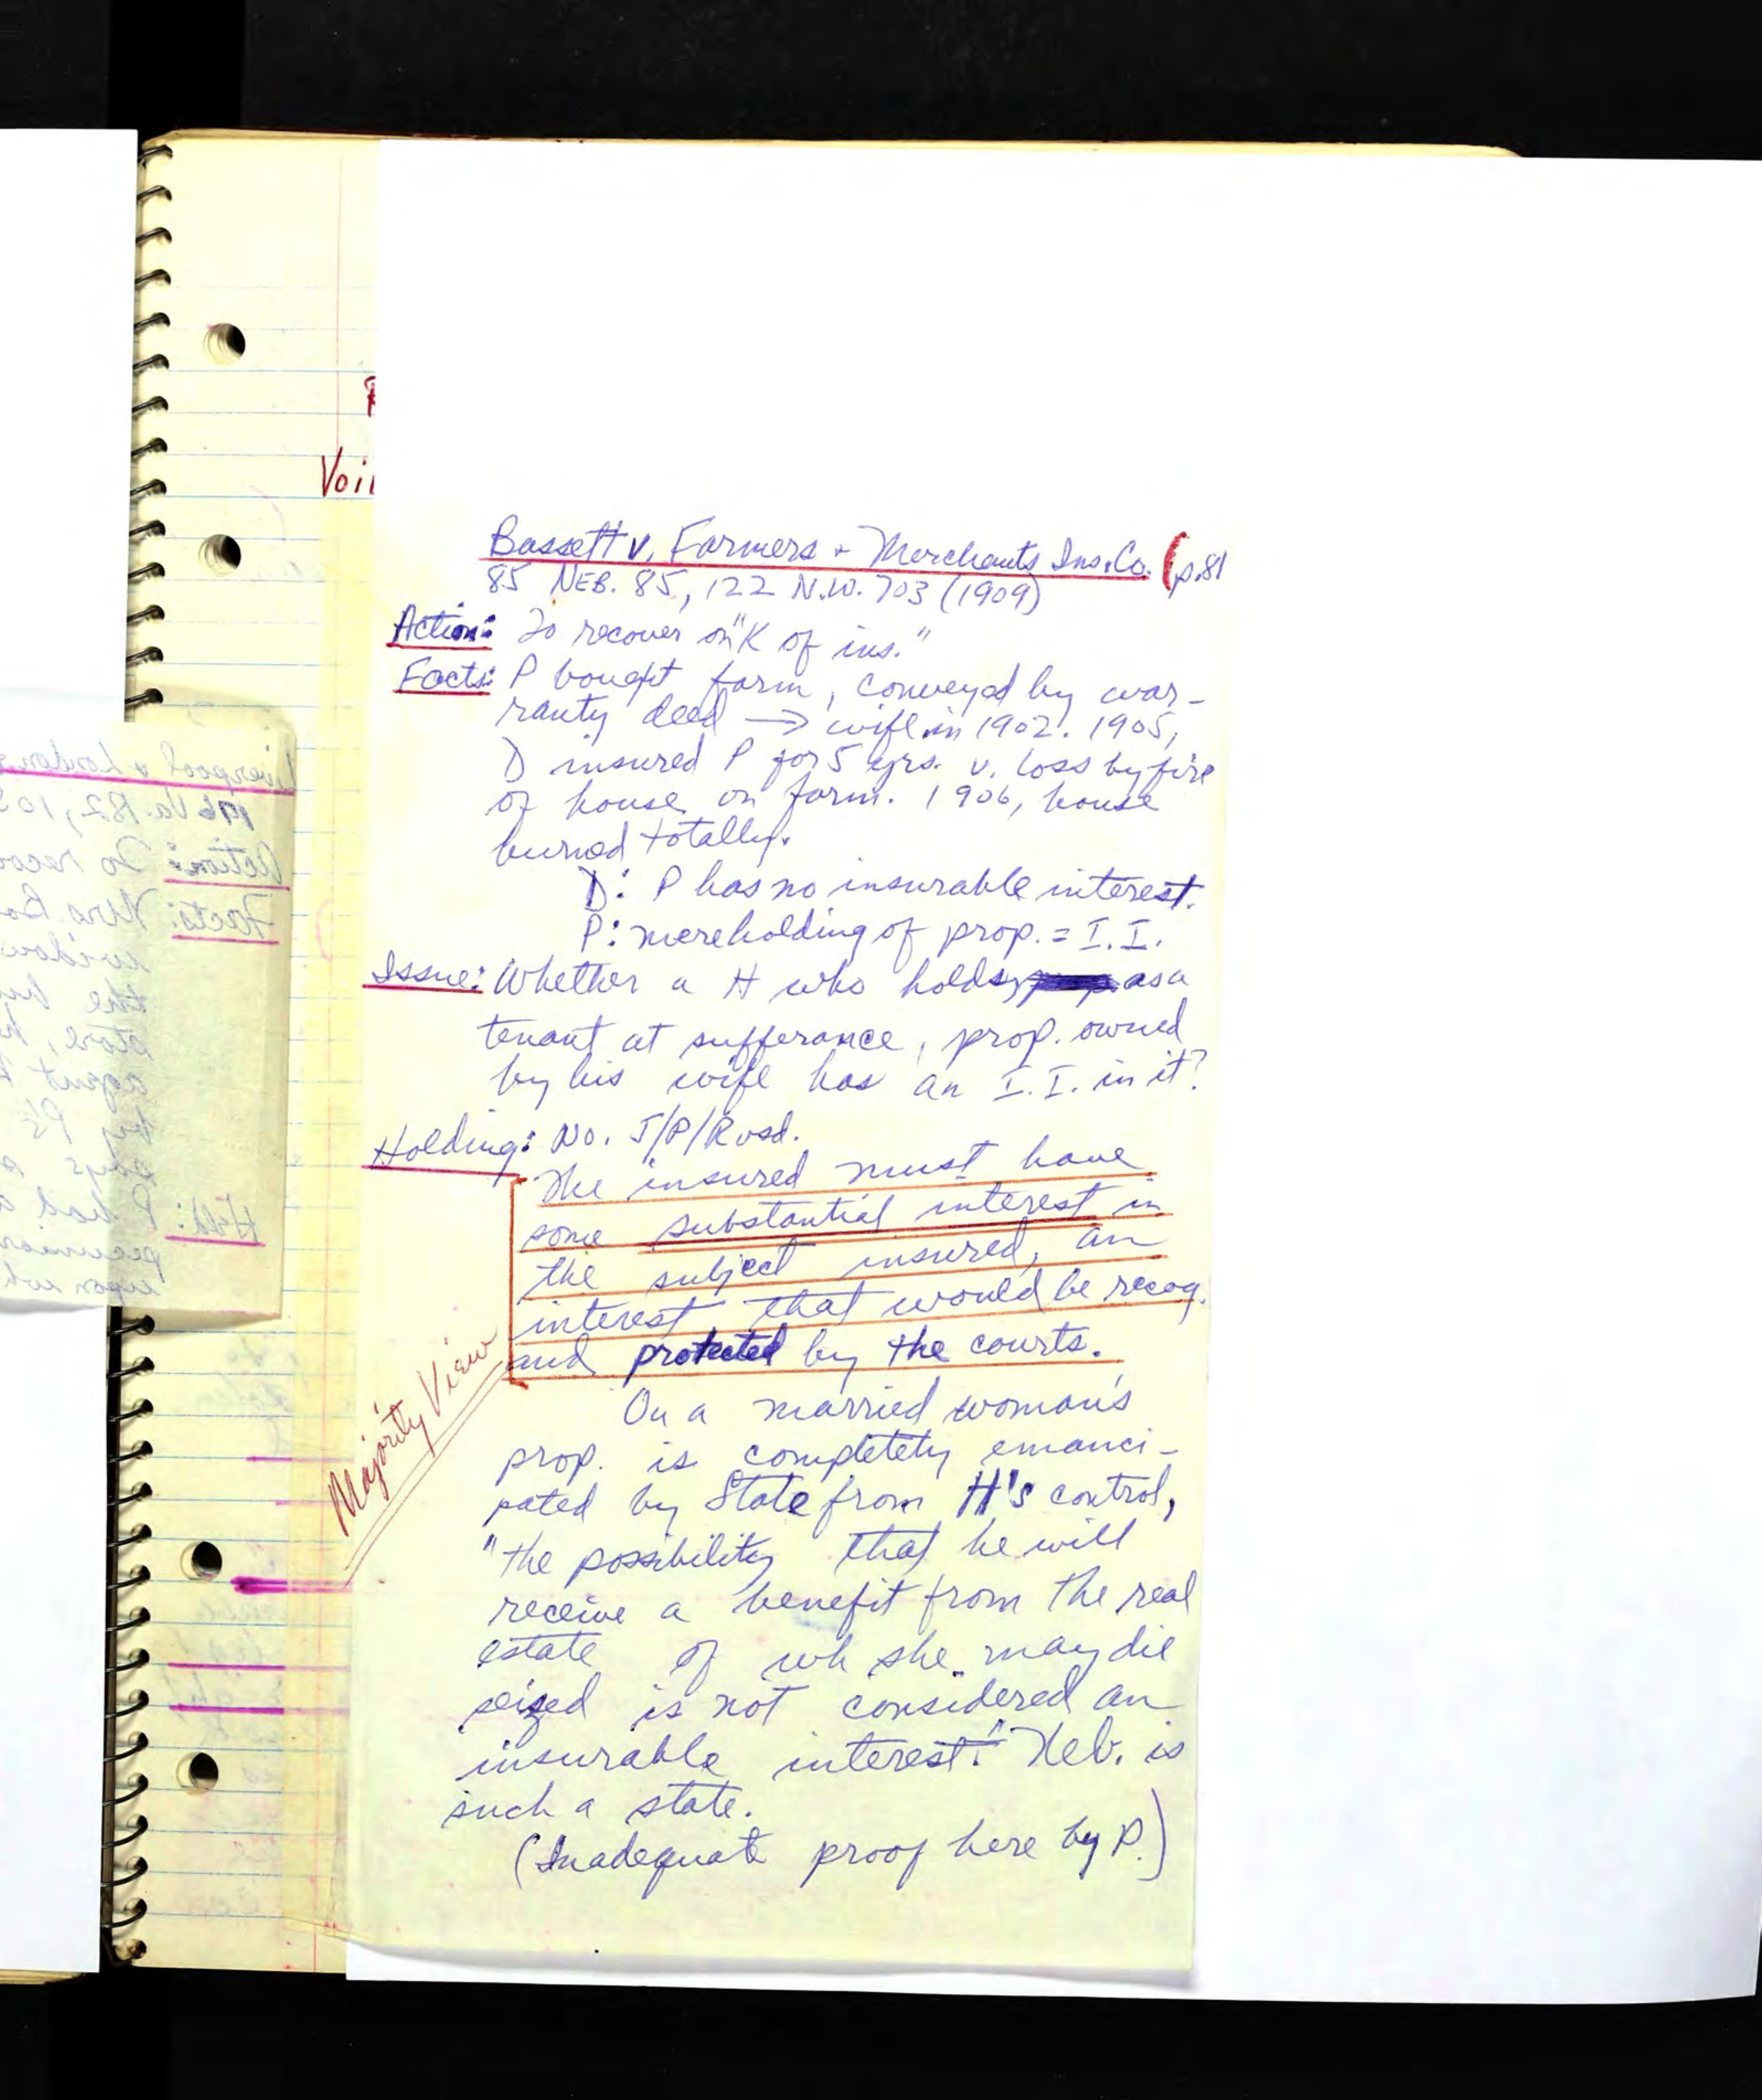 Voi
Bassett v. Farmers + Merchants Ins. Co. (p.81
85 NEB. 85, 122 N.W. 703 (1909)
Action: To recover on "K of ins."
Facts: P bought farm, conveyed by war-
ranty deed → wife in 1902. 1905,
D insured P for 5 yrs. v. loss by fire
of house on farm. 1906, house
burned totally.
D: P has no insurable interest.
P: mere holding of prop. = I.I.
Issue: Whether a H who holds, as a
tenant at sufferance, prop. owned
by his wife has an I.I. in it?
Holding: No. J/P/Rvsd.
The insured must have
some substantial interest in
the subject insured, an
interest that would be recog.
and protected by the courts.
Majority View
On a married woman's
prop. is completely emanci-
pated by State from H's control,
"the possibility that he will
receive a benefit from the real
estate of wh she may die
seized is not considered an
insurable interest." Neb. is
such a state.
(Inadequate proof here by P.)
Liverpool + London
196 Va. 182, 10
Action: To reco
Facts: Mrs. Ba
widow
the bu
store, h
agent
by P's
says
Held: P had a
pecuniar
upon wh